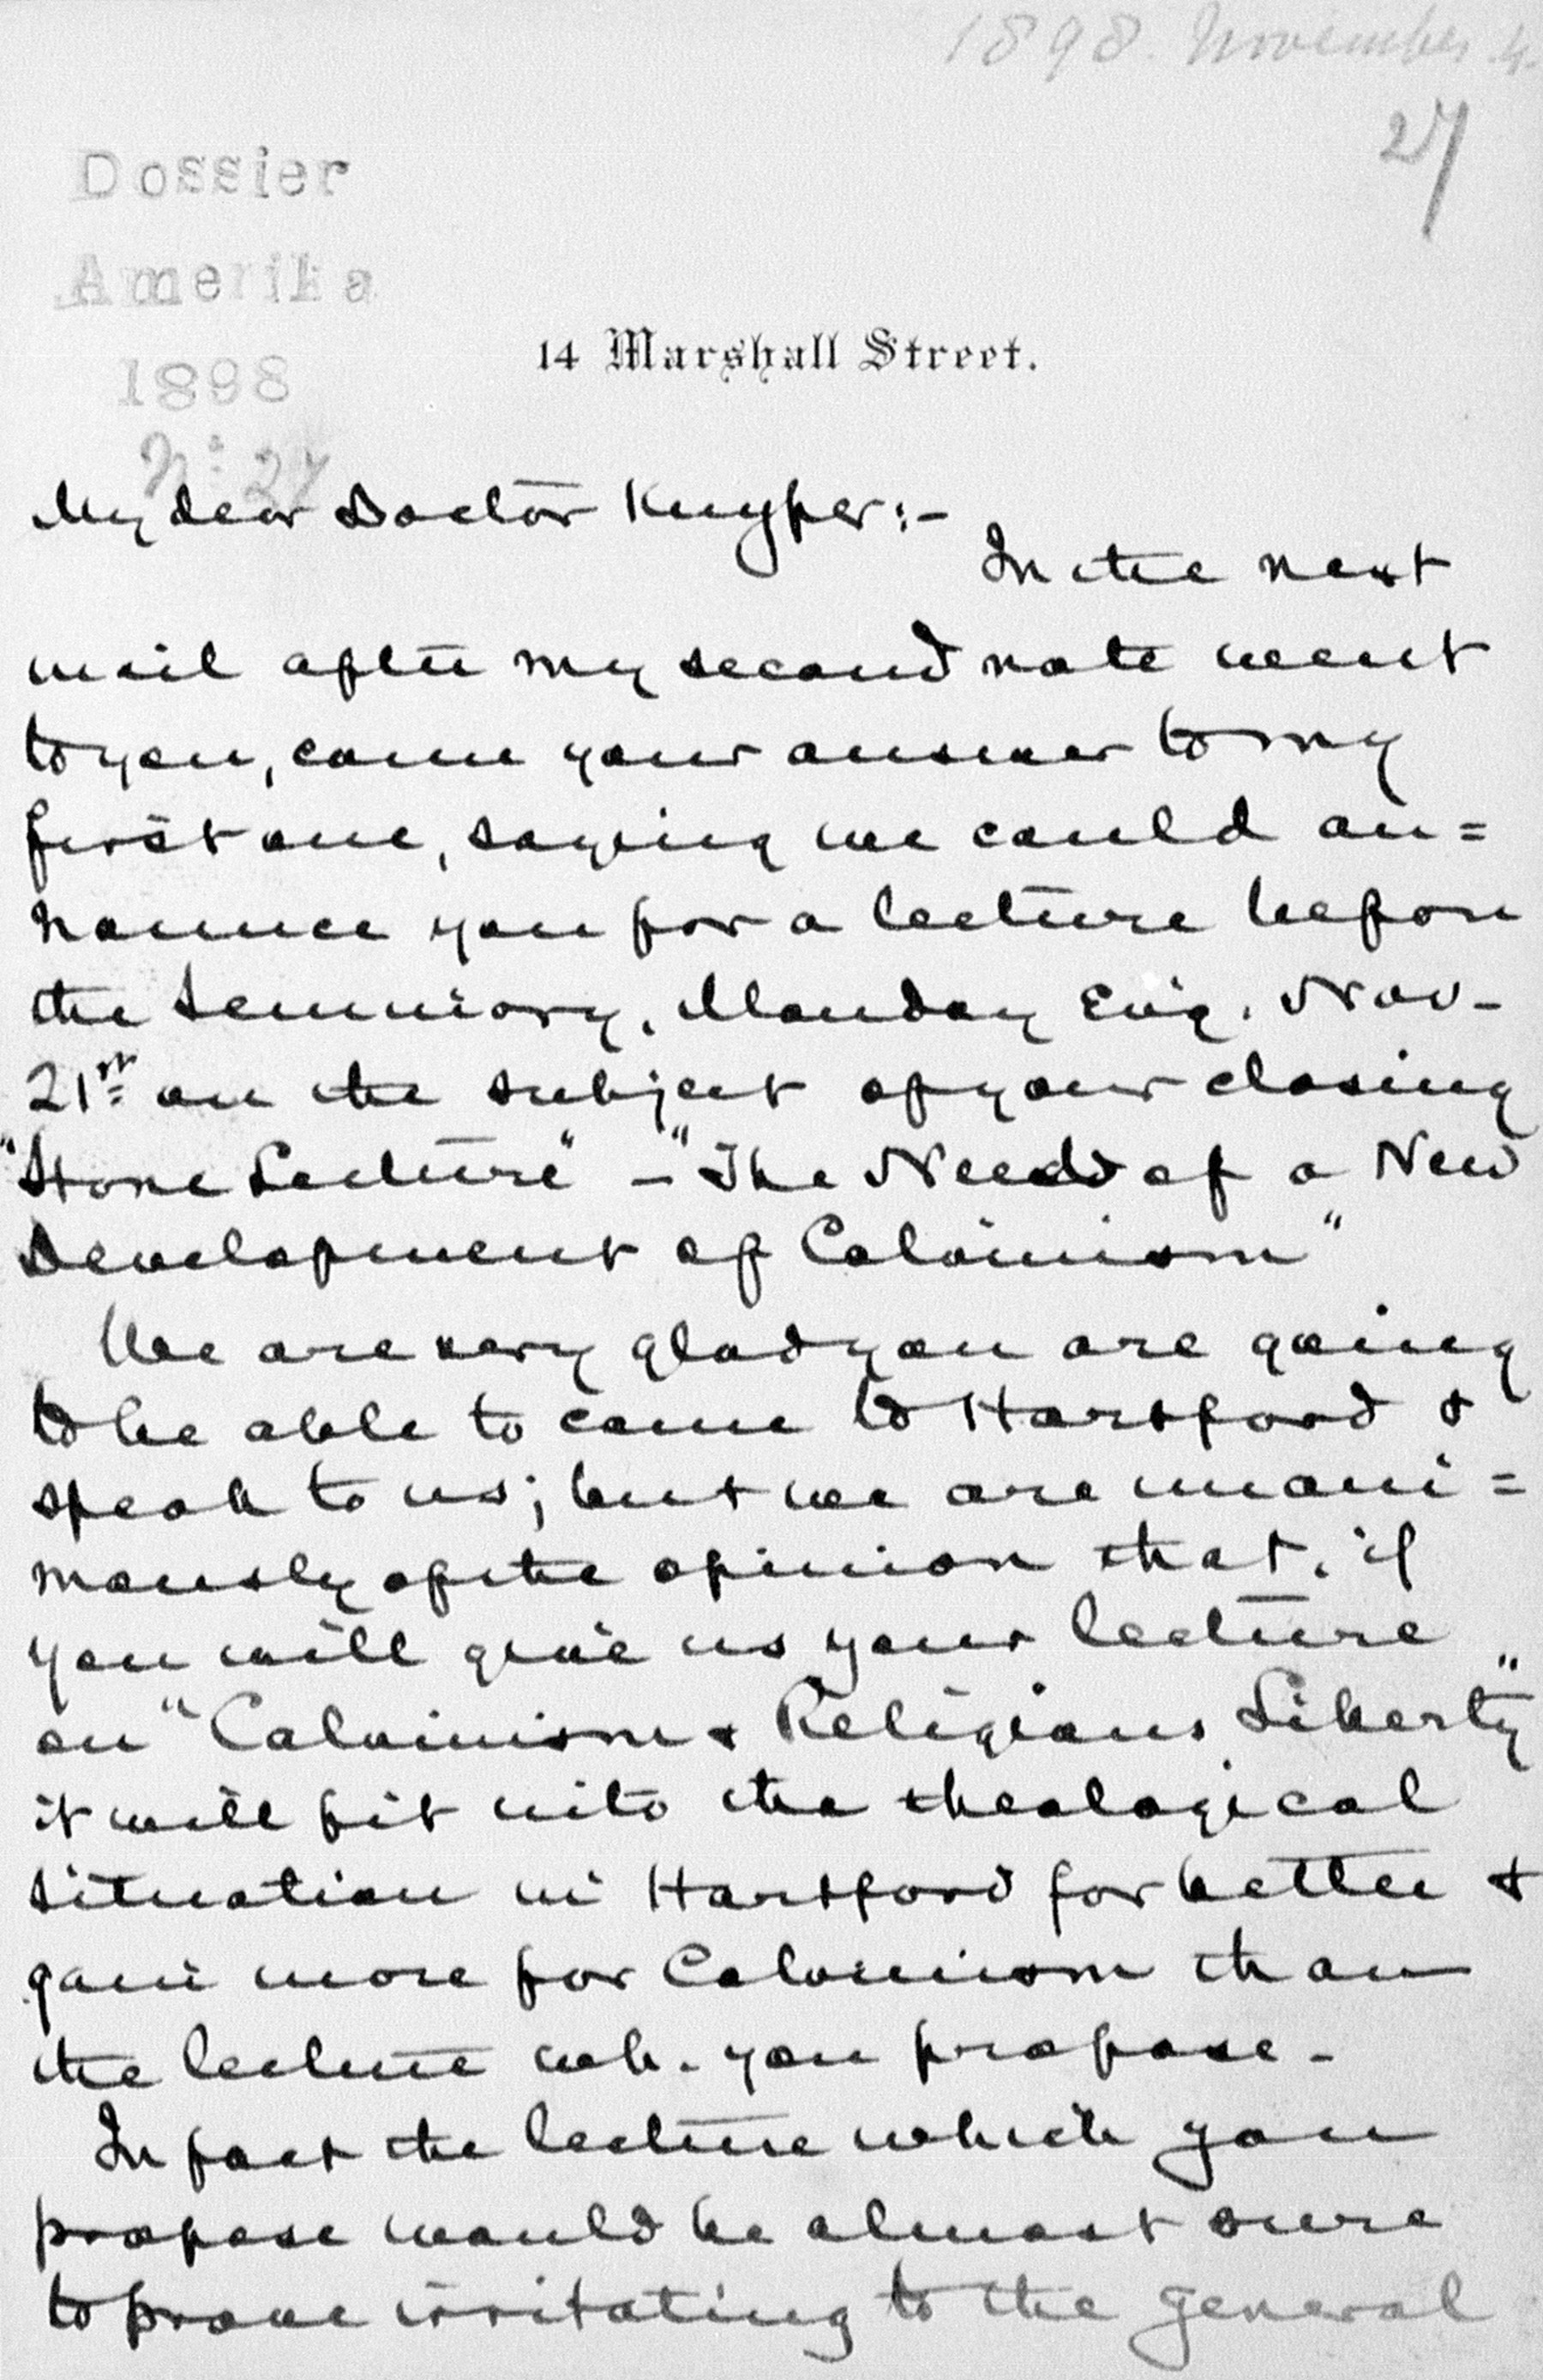 1898. November 4.
27
Dossier
Amerika
1898
No: 27
14 Marshall Street.
My dear Doctor Kuyper:-
In the next
mail after my second note went
to you, came your answer to my
first one, saying we could an=
nounce you for a lecture before
the Seminary, Monday Ev'g. Nov-
21st on the subject of your closing
"Stone Lecture" - "The Need of a New
Development of Calvinism"
We are very glad you are going
to be able to come to Hartford &
speak to us; but we are unani=
mously of the opinion that, if
you will give us your lecture
on "Calvinism & Religious Liberty"
it will fit into the theological
situation in Hartford far better &
gain more for Calvinism than
the lecture wh. you propose-
In fact the lecture which you
propose would be almost sure
to prove irritating to the general